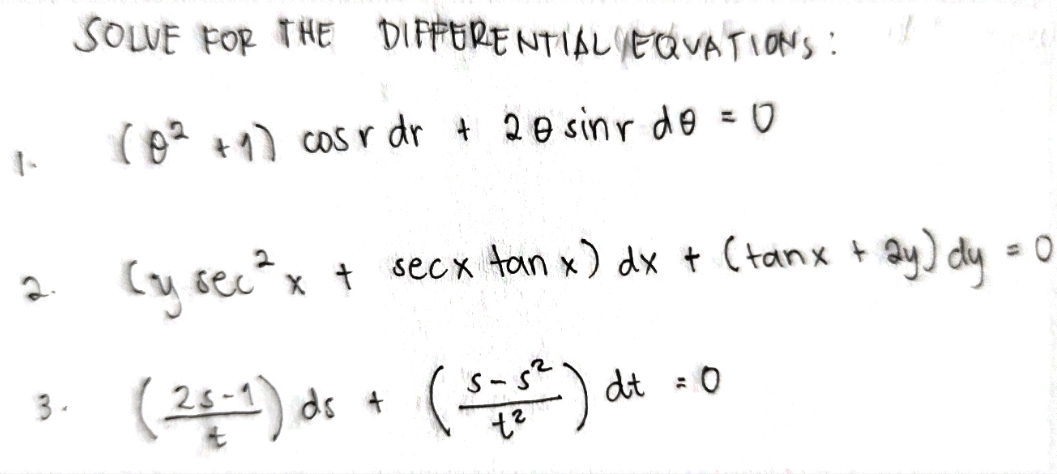 SOLVE FOR THE DIFFERENTIAL EQUATIONS:
1. (θ² + 1) cos r dr + 2θ sin r dθ = 0
2. (y sec² x + sec x tan x) dx + (tan x + 2y) dy = 0
3. ((2s-1)/t) ds + ((s-s²)/t²) dt = 0